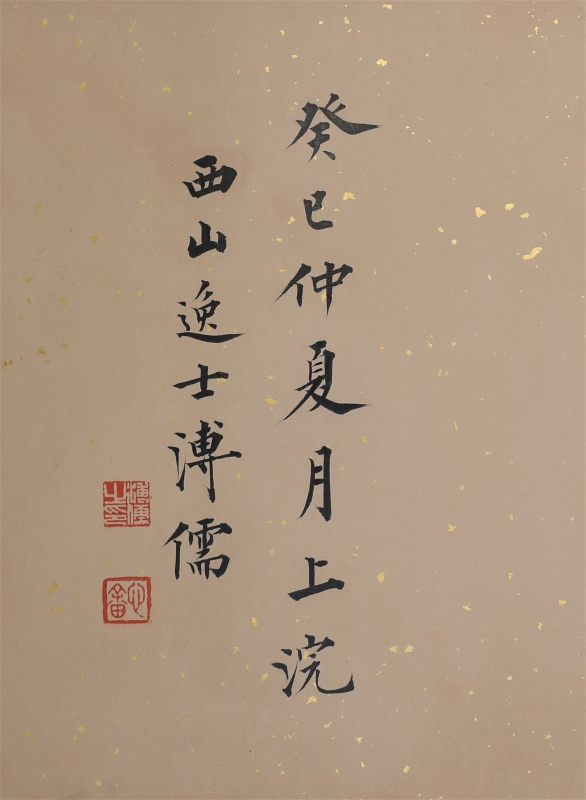 癸巳仲夏月上浣
西山逸士溥儒
溥儒之印
心畬